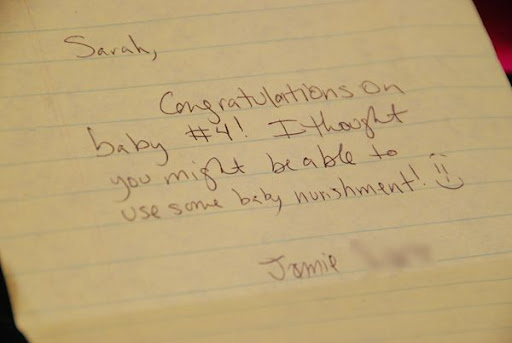 Sarah,
Congratulations on
baby #4! I thought
you might be able to
use some baby nurishment! :)
Jamie